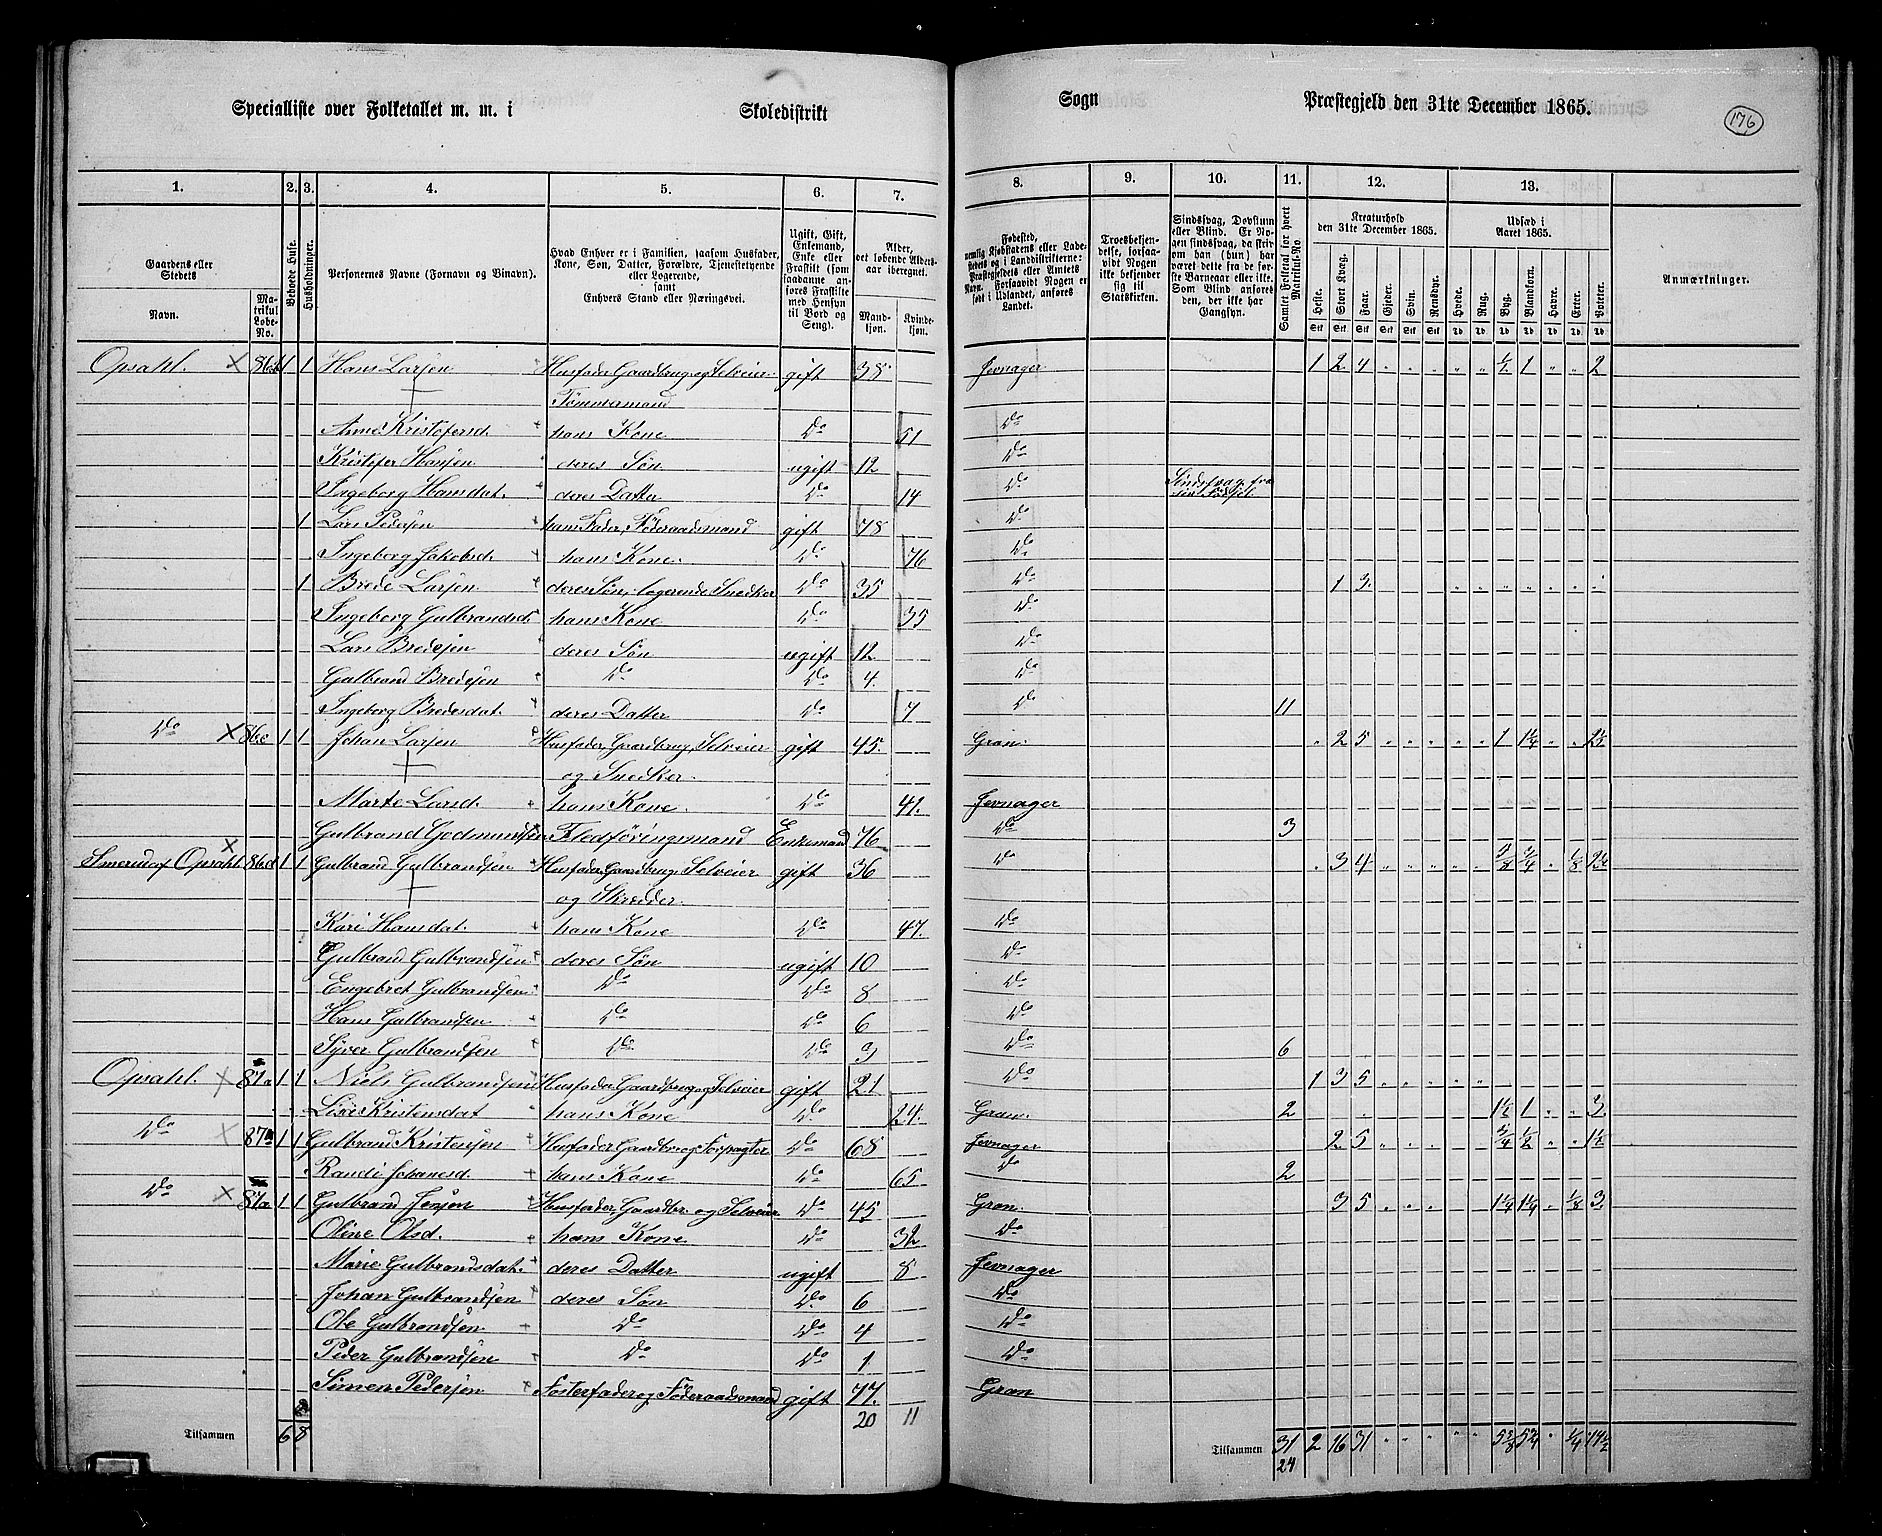 Specialliste over Folketallet m. m. i Skoledistrikt Sogn Præstegjeld den 31te December 1865.
176
1. 2. 3. 4. 5. 6. 7. 8. 9. 10. 11. 12. 13.
Gaardens eller Stedets
Navn.
Matrikul Løbe-No.
Beboede Huse.
Husholdninger.
Personernes Navne (Fornavn og Binavn).
Hvad Enhver er i Familien, saasom Husfader, Kone, Søn, Datter, Forældre, Tjenestetyende eller Logerende,
samt
Enhvers Stand eller Næringsvei.
Ugift, Gift, Enkemand, Enke eller Fraskilt (som saadanne anføres Fraskilte med Hensyn til Bord og Seng).
Alder, det løbende Aldersaar iberegnet.
Mandkjøn.
Kvindekjøn.
Fødested, nemlig Kjøbstædens eller Ladestedets og i Landdistrikterne: Præstegjeldets eller Amtets Navn. Forsaavidt Nogen er født i Udlandet, anføres Landet.
Troesbekjendelse, forsaavidt Nogen ikke bekjender sig til Statskirken.
Sindssvag, Døvstum eller Blind. Er Nogen sindssvag, da skrives om han (hun) har været dette fra de første Barneaar eller ikke. Som Blind anføres den, der ikke har Gangsyn.
Samlet Folketal for hvert Matrikul-No.
Kreaturhold den 31te December 1865.
Heste. Stort Kvæg. Faar. Gjeder. Svin. Rensdyr.
Udsæd i Aaret 1865.
Hvede. Rug. Byg. Blandkorn. Havre. Erter. Poteter.
Anmærkninger.
Opsahl. 86b 1 1 Hans Larsen Husfader Gaardbrug. og Selveier gift 38 Jevnager 1 2 4 " " " " " ½ 1 " " 2
Tømmermand
Anne Kristofersd. hans Kone Do 51 Do
Kristofer Hansen deres Søn ugift 12 Do
Ingeborg Hansdat. deres Datter Do 14 Do Sindssvag fra
1 Lars Pedersen hans Fader, Føderaadsmand gift 78 Do
Ingeborg Jakobsd. hans Kone Do 76 Do
1 Brede Larsen deres Søn, logerende Snedker Do 35 Do 1 3
Ingeborg Gulbrandsd. hans Kone Do 35 Do
Lars Bredesen deres Søn ugift 12 Do
Gulbrand Bredesen Do Do 4 Do
Ingeborg Bredesdat. deres Datter Do 7 Do 11
Do 86c 1 1 Johan Larsen Husfader, Gaardbrug. Selveier gift 45 Gran. " 2 5 " " " " " 1 1¼ " "
og Snedker.
Marte Larsd. hans Kone Do 41 Jevnager
Gulbrand Gudmundsen Fledføringsmand Enkemand 76 Do 3
Smerud af Opsahl 86d 1 1 Gulbrand Gulbrandsen Husfader, Gaardbrug. Selveier gift 36 Do " 3 4 " " " " "
og Skrædder.
Kari Hansdat. hans Kone Do 47 Do
Gulbrand Gulbrandsen deres Søn ugift 10 Do
Engebret Gulbrandsen Do Do 8 Do
Hans Gulbrandsen Do Do 6 Do
Syver Gulbrandsen Do Do 3 Do 6
Opsahl. 87a 1 1 Niels Gulbrandsen Husfader Gaardbrug. og Selveier gift 21 Do 1 3 5 " " " " "
Lise Kristensdat hans Kone Do 24 Gran. 2 1½ 1 " " 3
Do 87b 1 1 Gulbrand Kristensen Husfader Gaardbr. og Forpagter Do 68 Jevnager 2 5 " " " " ¾ ½ " " 1½
Randi Johanesd. hans Kone Do 65 Do 2
Do 87a 1 1 Gulbrand Jensen Husfader, Gaardbr. og Selveier Do 45 Gran. 3 5 " " " 1¼ 1¼ " ⅛ 3
Oline Olsd. hans Kone Do 32 Do
Marie Gulbrandsdat. deres Datter ugift 8 Jevnager
Johan Gulbrandsen deres Søn Do 6 Do
Ole Gulbrandsen Do Do 4 Do
Peder Gulbrandsen Do Do 1 Do
Simen Pedersen Fosterfader og Føderaadsmand gift 77 Gran
Tilsammen 6 8 20 11 Tilsammen 31 2 16 31
24